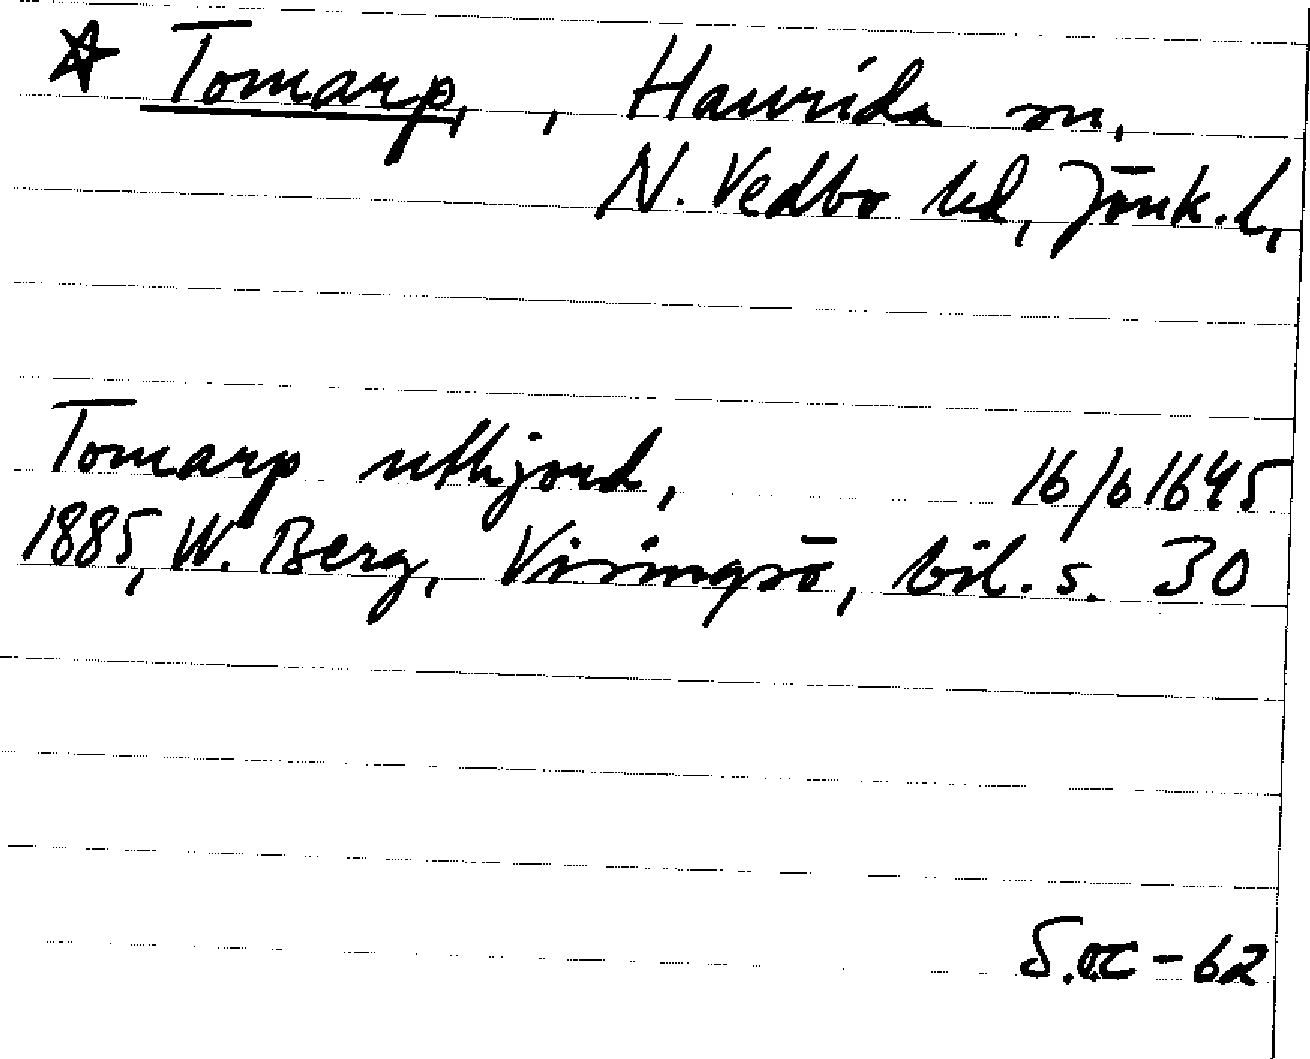 ☆ Tomarp, , Haurida sn,
N. Vedbo hd, Jönk. l,
Tomarp utkjord, 16/6 1645
1885, W. Berg, Visingsö, bil. s. 30